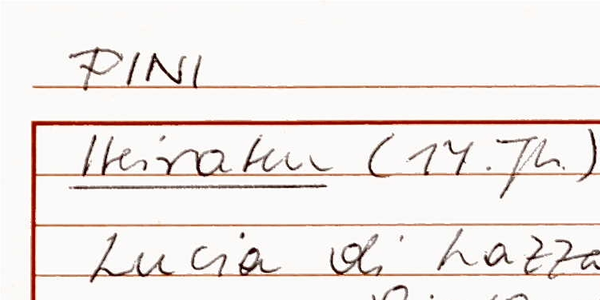 PINI
Heiraten (14. Jh.)
Lucia di Lazza